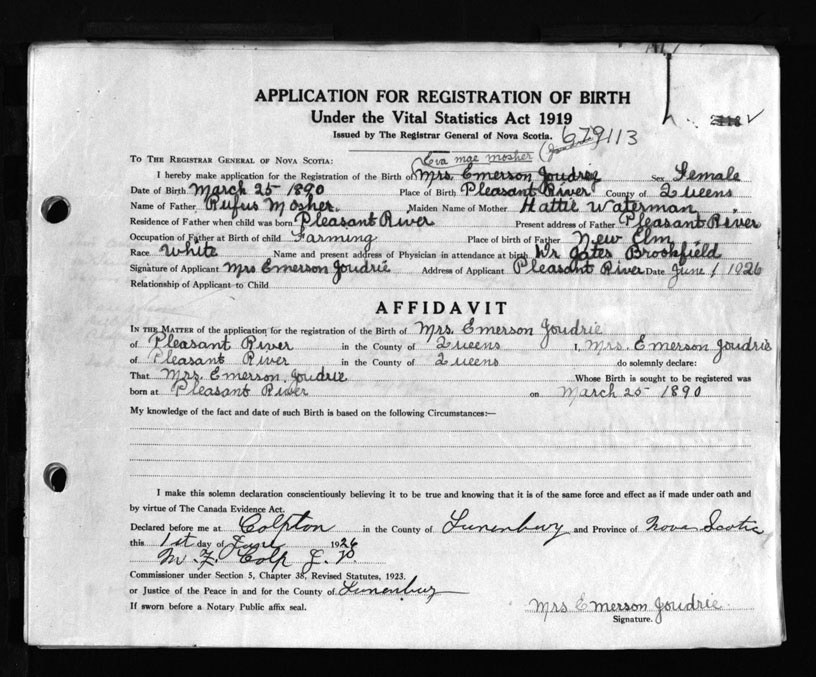 APPLICATION FOR REGISTRATION OF BIRTH
Under the Vital Statistics Act 1919
Issued by The Registrar General of Nova Scotia.
679113
Eva mae mosher
TO THE REGISTRAR GENERAL OF NOVA SCOTIA:
I hereby make application for the Registration of the Birth of Mrs. Emerson Joudrie Sex Female
Date of Birth March 25 1890 Place of Birth Pleasant River County of Queens
Name of Father Rufus Mosher. Maiden Name of Mother Hattie Waterman
Residence of Father when child was born Pleasant River Present address of Father Pleasant River
Occupation of Father at Birth of child Farming Place of birth of Father New Elm
Race White Name and present address of Physician in attendance at birth Dr Gates Brookfield
Signature of Applicant Mrs Emerson Joudrie Address of Applicant Pleasant River Date June 1 1926
Relationship of Applicant to Child
AFFIDAVIT
IN THE MATTER of the application for the registration of the Birth of Mrs. Emerson Joudrie
of Pleasant River in the County of Queens I, Mrs. Emerson Joudrie
of Pleasant River in the County of Queens do solemnly declare:
That Mrs. Emerson Joudrie Whose Birth is sought to be registered was
born at Pleasant River on March 25 1890
My knowledge of the fact and date of such Birth is based on the following Circumstances:—
I make this solemn declaration conscientiously believing it to be true and knowing that it is of the same force and effect as if made under oath and
by virtue of The Canada Evidence Act.
Declared before me at Colpton in the County of Lunenburg and Province of Nova Scotia
this 1st day of June 1926
M. Z. Colp J. P.
Commissioner under Section 5, Chapter 38, Revised Statutes, 1923.
or Justice of the Peace in and for the County of Lunenburg
If sworn before a Notary Public affix seal.
Mrs Emerson Joudrie
Signature.